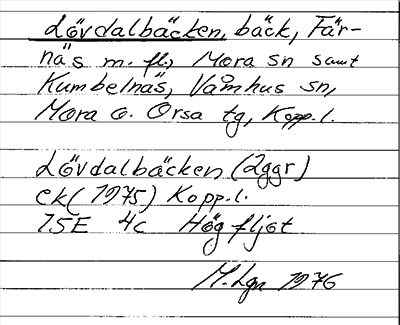 Lövdalbäcken, bäck, Fär-
näs m. fl., Mora sn samt
Kumbelnäs, Våmhus sn,
Mora o. Orsa tg, Kopp.l.
Lövdalbäcken (2ggr)
ek (1975) Kopp.l.
15E 4c Högfljot
M.Lgn 1976